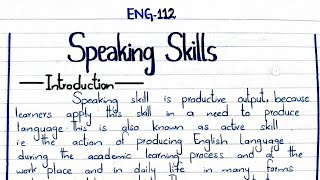 ENG-112
Speaking Skills
Introduction
Speaking skill is productive output, because
learners apply this skill in a need to produce
language this is also known as active skill
i.e the action of producing English language
during the academic learning process and at the
work place and in daily life in many forms